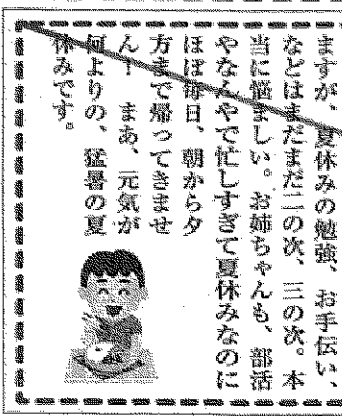 ますが、夏休みの勉強、お手伝い、
などはまだまだ二の次、三の次。本
当に悩ましい。お姉ちゃんも、部活
やなんやで忙しすぎて夏休みなのに
ほぼ毎日、朝から夕
方まで帰ってきませ
ん！　まあ、元気が
何よりの、猛暑の夏
休みです。